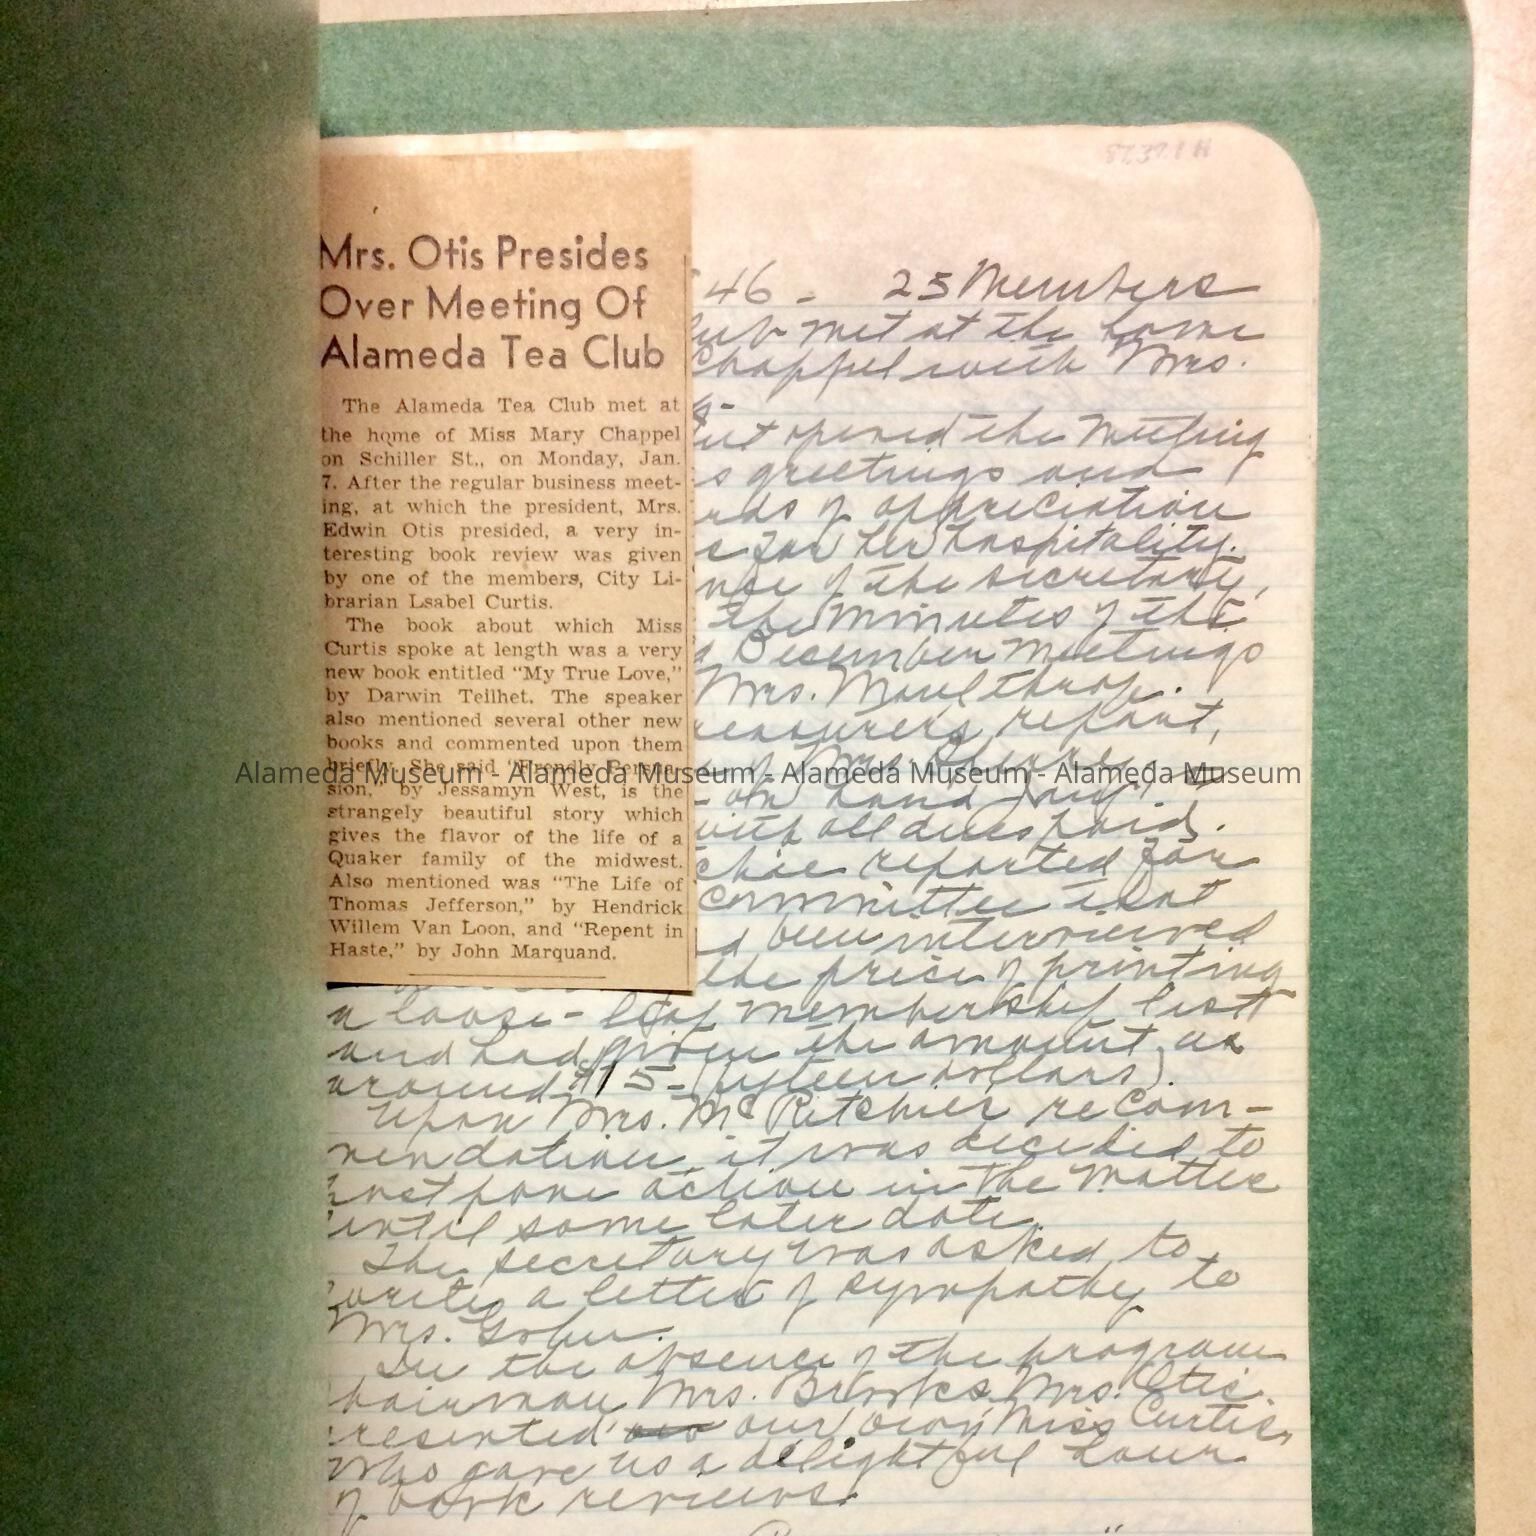 Mrs. Otis Presides
Over Meeting Of
Alameda Tea Club
The Alameda Tea Club met at
the home of Miss Mary Chappel
on Schiller St., on Monday, Jan.
7. After the regular business meet-
ing, at which the president, Mrs.
Edwin Otis presided, a very in-
teresting book review was given
by one of the members, City Li-
brarian Lsabel Curtis.
The book about which Miss
Curtis spoke at length was a very
new book entitled "My True Love,"
by Darwin Teilhet. The speaker
also mentioned several other new
books and commented upon them
briefly. She said "Friendly Persua-
sion," by Jessamyn West, is the
strangely beautiful story which
gives the flavor of the life of a
Quaker family of the midwest.
Also mentioned was "The Life of
Thomas Jefferson," by Hendrick
Willem Van Loon, and "Repent in
Haste," by John Marquand.
46 - 25 Members
met at the home
Chappel with Mrs.
opened the meeting
greetings and
of appreciation
for her hospitality.
of the secretary,
the minutes of the
December meetings
Mrs. Moulthrop.
report,
on hand
with all dues paid.
reported for
committee that
been interviewed
the price of printing
a loose-leaf membership list
and had given the amount as
around $15 - (fifteen dollars).
Upon Mrs. McRitchie's recom-
mendation, it was decided to
postpone action in the matter
until some later date.
The secretary was asked to
write a letter of sympathy to
Mrs.
In the absence of the program
chairman Mrs. Brooks, Mrs. Otis
presented our own Miss Curtis,
who gave us a delightful hour
of book reviews.
Alameda Museum - Alameda Museum - Alameda Museum - Alameda Museum